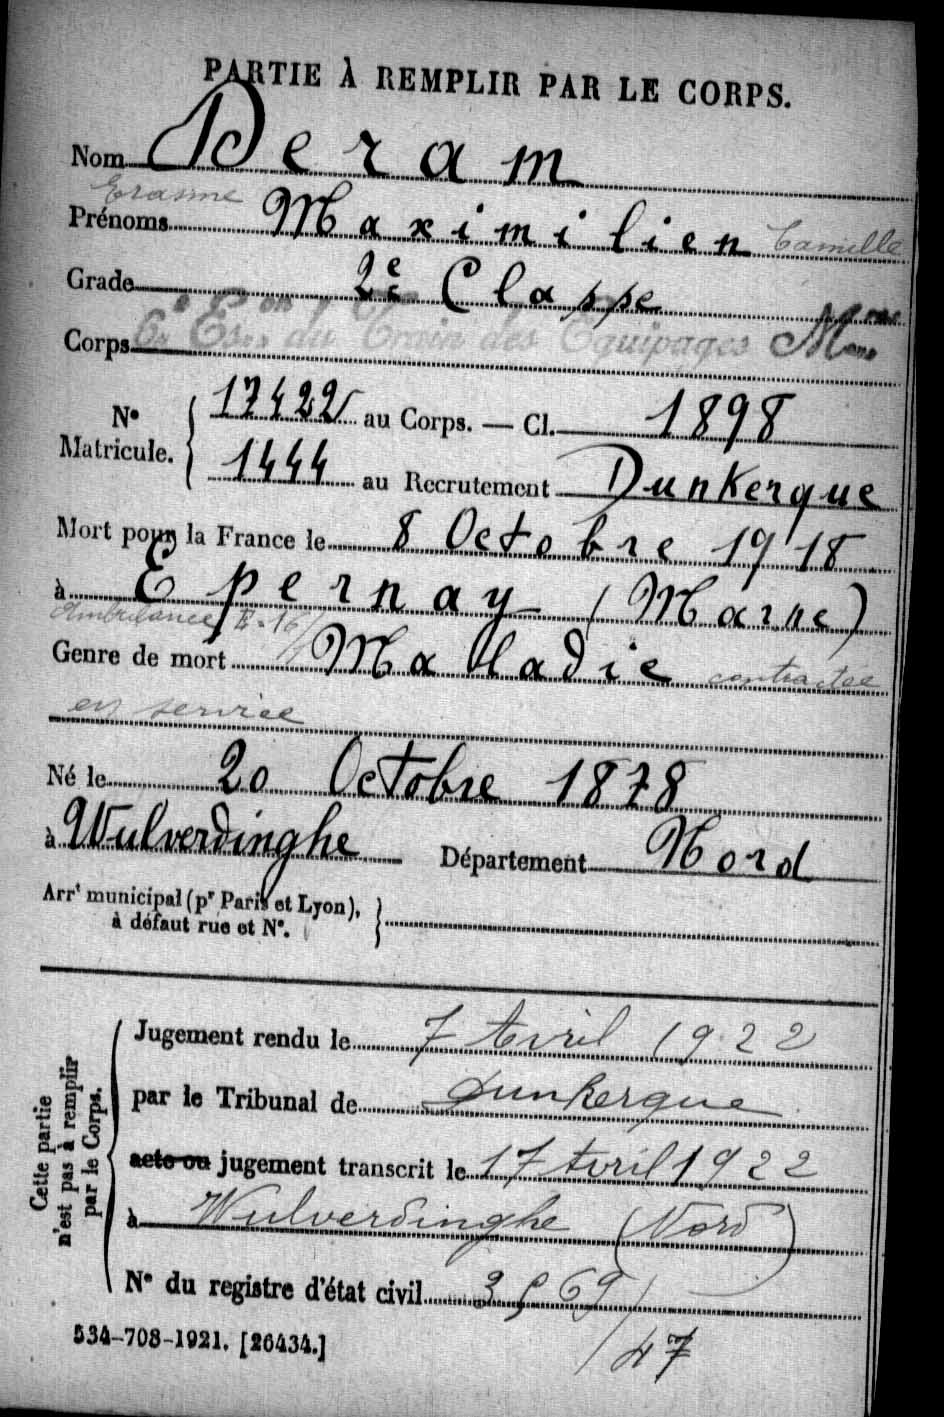 PARTIE À REMPLIR PAR LE CORPS.
Nom Deram
Erasme
Prénoms Maximilien Camille
Grade 2e Clappe
Corps 6e Eson du Train des Equipages Mres
No Matricule. 17422 au Corps. — Cl. 1898
1444 au Recrutement Dunkerque
Mort pour la France le 8 Octobre 1918
à Epernay (Marne)
Ambulance 16/
Genre de mort Maladie contractée
en service
Né le 20 Octobre 1878
à Wulverdinghe Département Nord
Arrt municipal (pr Paris et Lyon),
à défaut rue et No.
Cette partie n'est pas à remplir par le Corps.
Jugement rendu le 7 Avril 1922
par le Tribunal de Dunkerque
acte ou jugement transcrit le 17 Avril 1922
à Wulverdinghe (Nord)
No du registre d'état civil
534-708-1921. [26434.]
/47